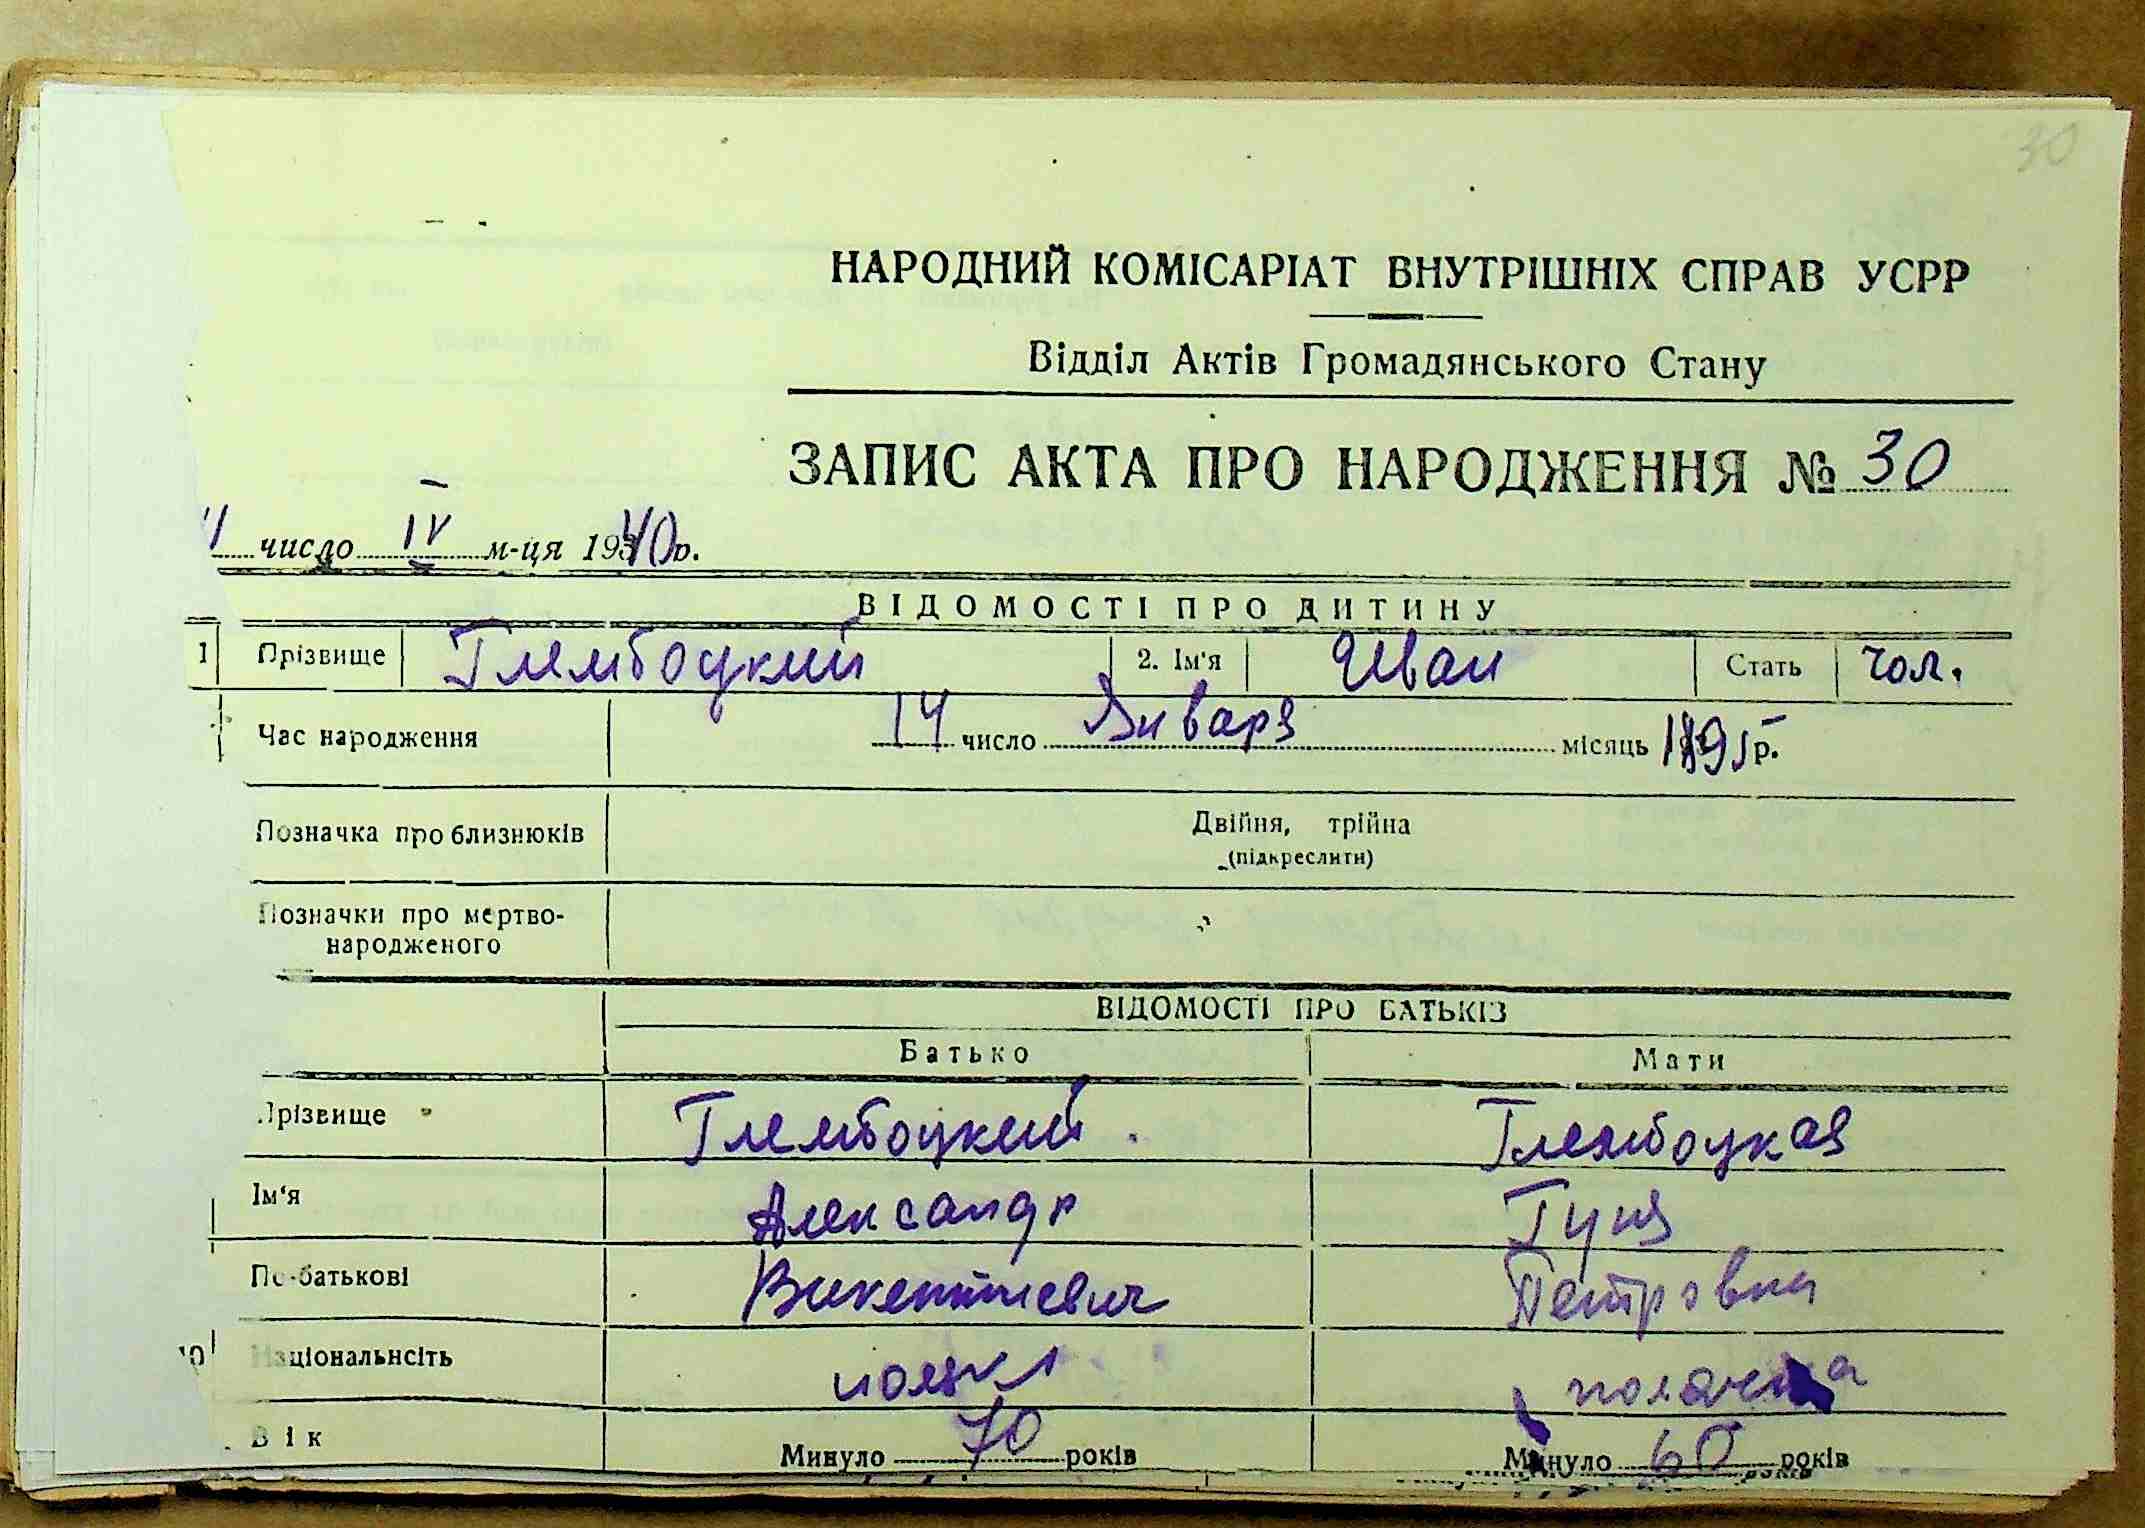 30
НАРОДНИЙ КОМІСАРІАТ ВНУТРІШНІХ СПРАВ УСРР
Відділ Актів Громадянського Стану
ЗАПИС АКТА ПРО НАРОДЖЕННЯ № 30
число IV м-ця 1940 р.
ВІДОМОСТІ ПРО ДИТИНУ
1 Прізвище Глембоцкий 2. Ім'я Иван Стать чол.
Час народження 14 число Января місяць р.
Позначка про близнюків Двійня, трійна
(підкреслити)
Позначки про мертво-
народженого
ВІДОМОСТІ ПРО БАТЬКІВ
Батько Мати
Прізвище Глембоцкий Глембоцкая
Ім'я Александр
По-батькові Викентиевич Петровна
Національнсіть поляк полячка
Вік Минуло 70 років Минуло 60 років